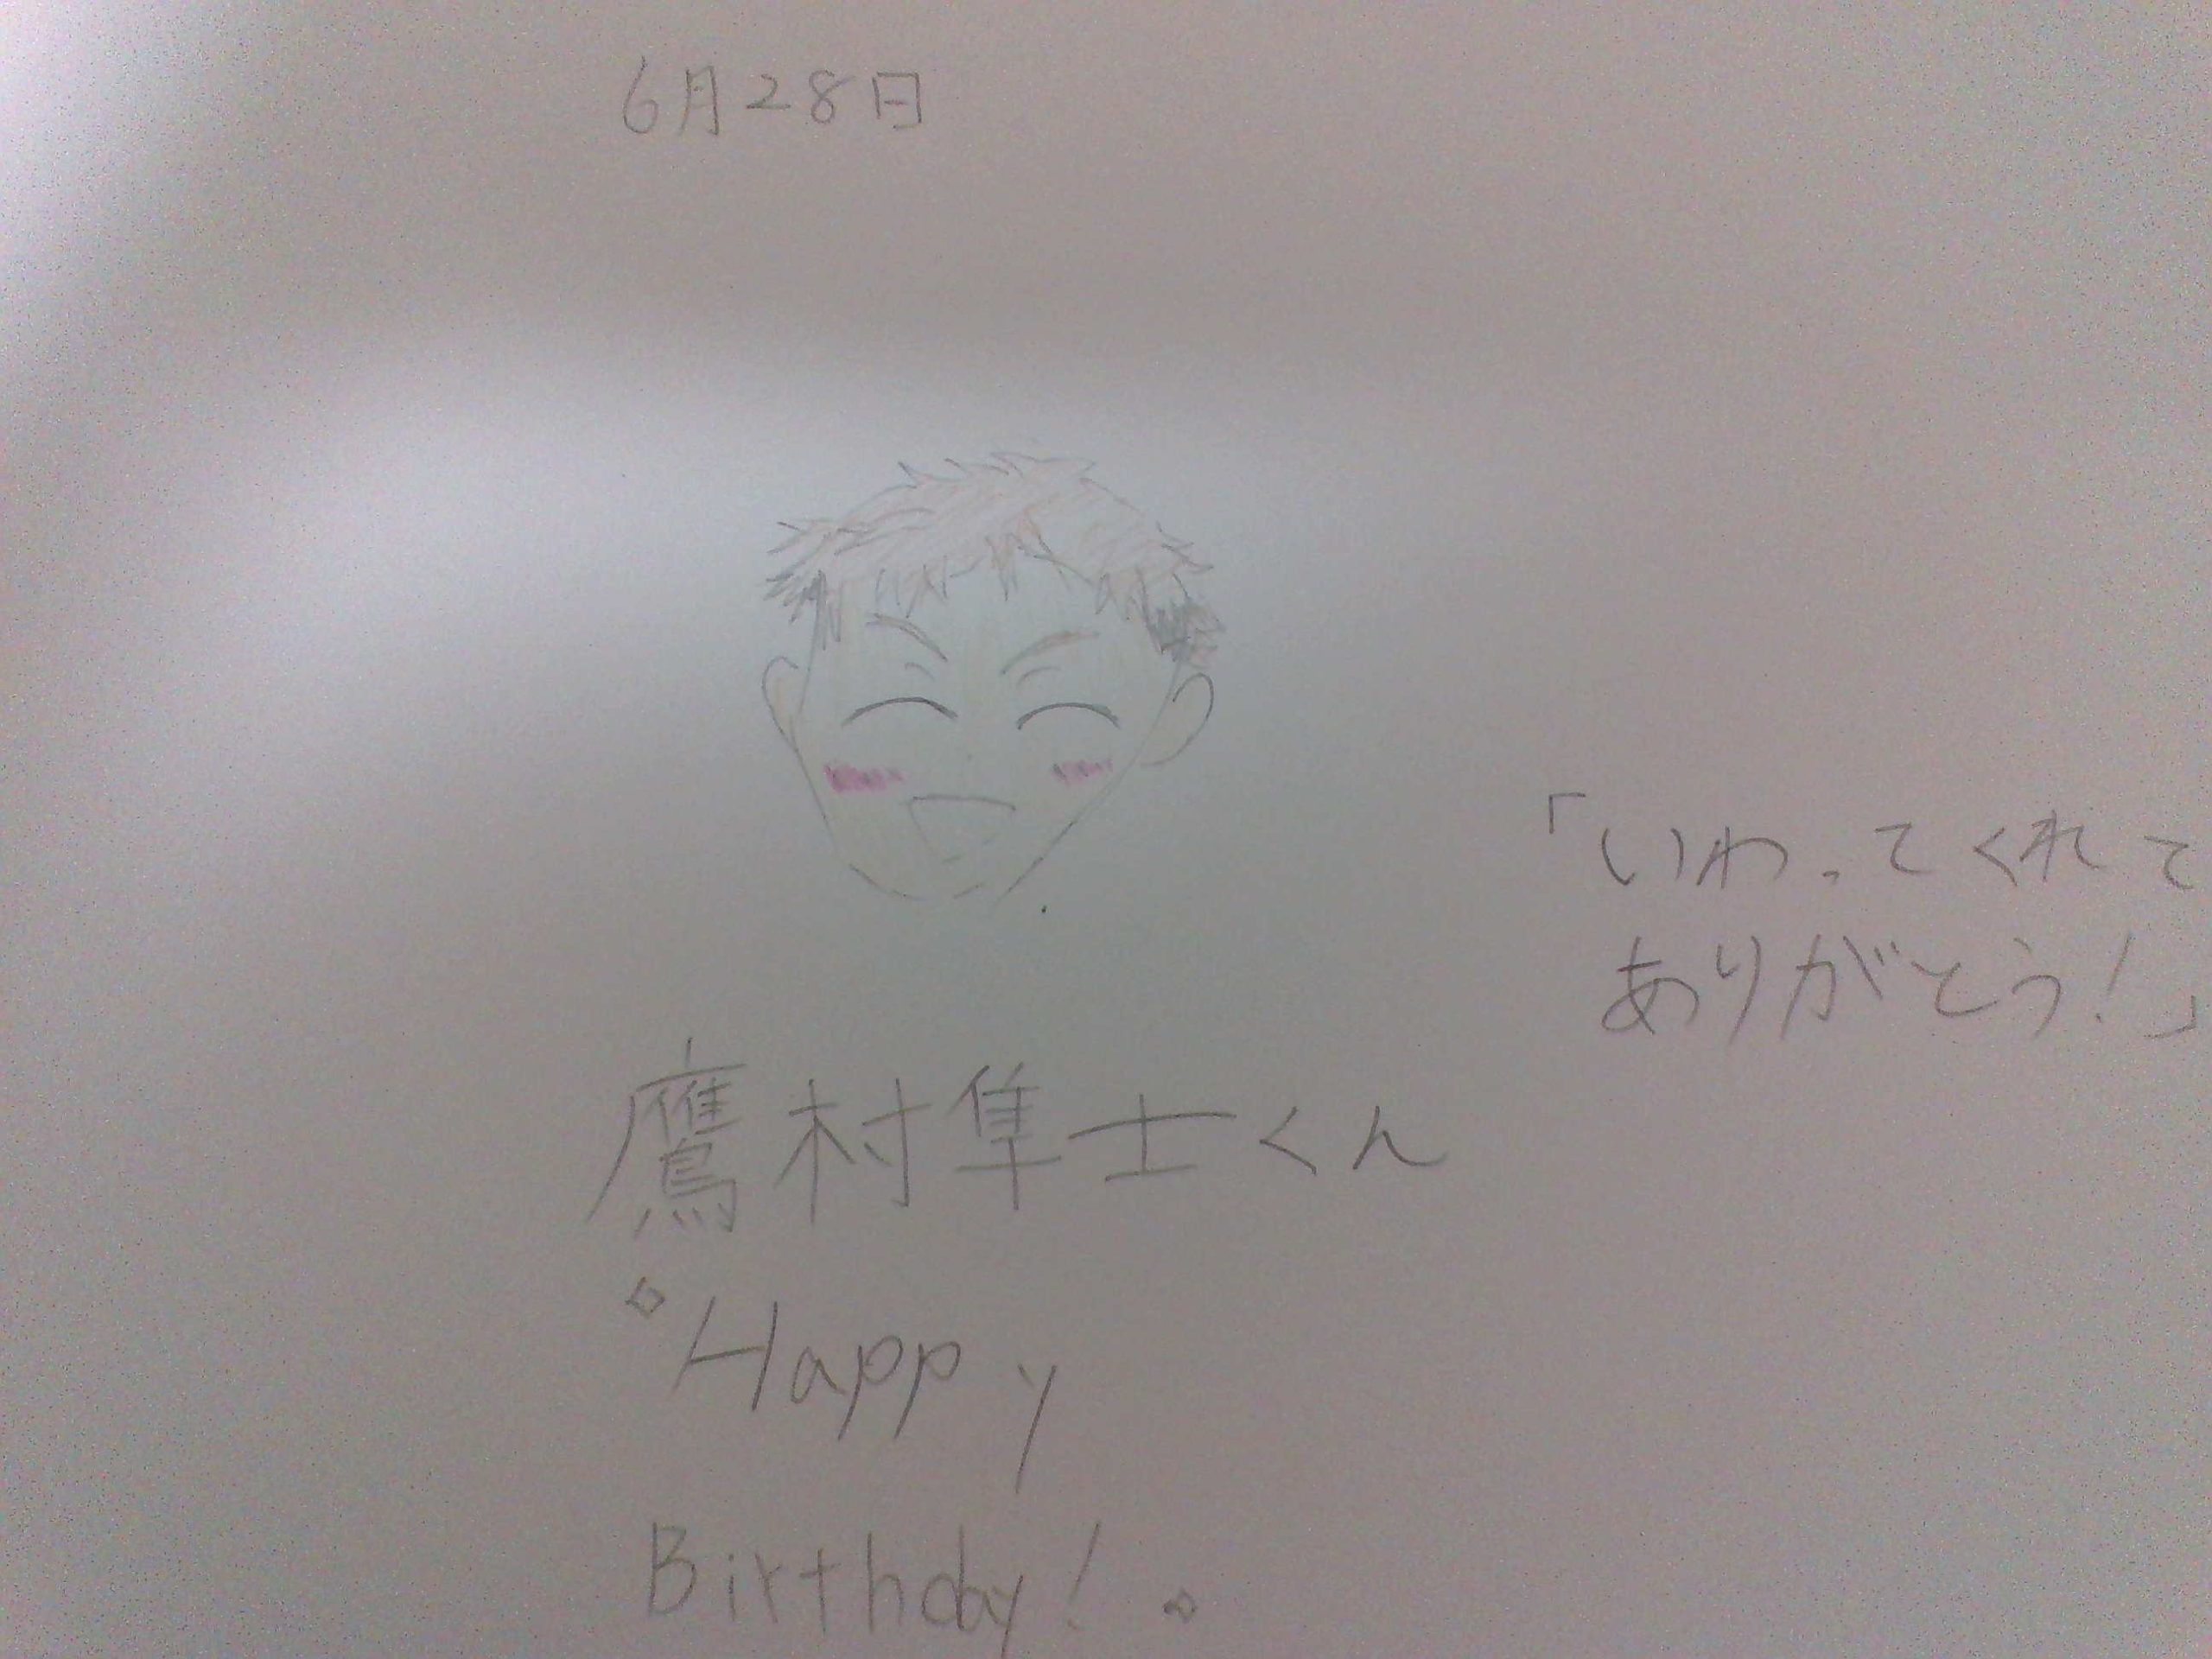 6月28日
「いわってくれて
ありがとう!」
鷹村隼士くん
Happy
Birthday!